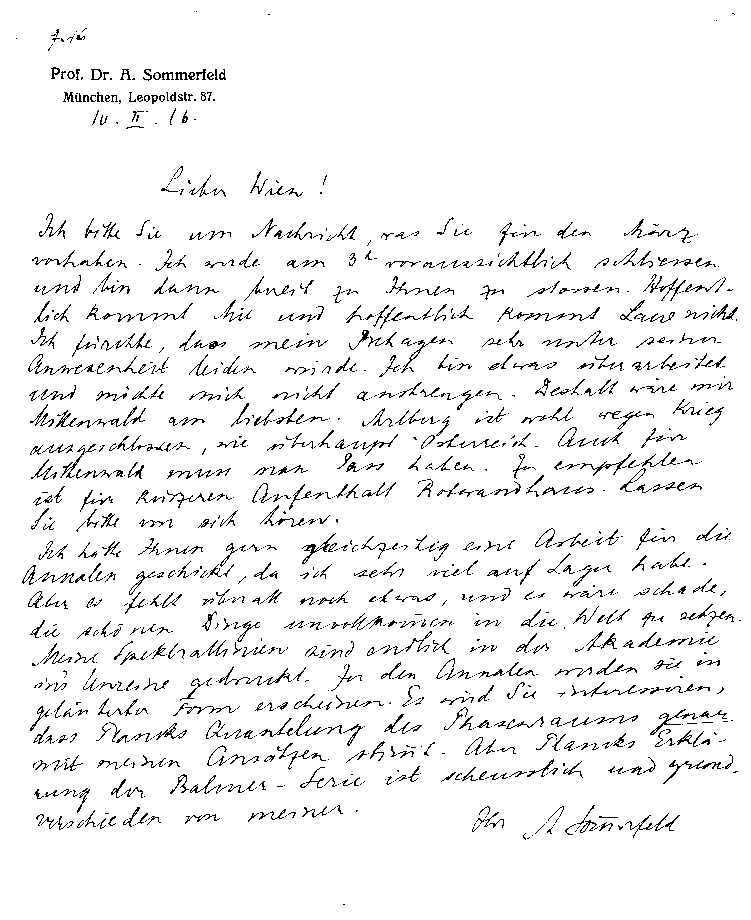 Prof. Dr. A. Sommerfeld
München, Leopoldstr. 87.
10. II. 16.
Lieber Wien!
Ich bitte Sie um Nachricht, was Sie für den März
vorhaben. Ich werde am 3t voraussichtlich schliessen
und bin dann bereit zu Ihnen zu stossen. Hoffent-
lich kommt Mie und hoffentlich kommt Laue nicht.
Ich fürchte, dass mein Behagen sehr unter seiner
Anwesenheit leiden würde. Ich bin etwas überarbeitet
und möchte mich nicht anstrengen. Deshalb wäre mir
Mittenwald am liebsten. Arlberg ist wohl wegen Krieg
ausgeschlossen, wie überhaupt Österreich. Auch für
Mittenwald muss man Pass haben. Zu empfehlen
ist für kürzeren Aufenthalt Rotwandhaus. Lassen
Sie bitte von sich hören.
Ich hätte Ihnen gern gleichzeitig eine Arbeit für die
Annalen geschickt, da ich sehr viel auf Lager habe.
Aber es fehlt überall noch etwas, und es wäre schade,
die schönen Dinge unvollkommen in die Welt zu setzen.
Meine Spektrallinien sind endlich in der Akademie
ins Unreine gedruckt. In den Annalen werden sie in
geläuterter Form erscheinen. Es wird Sie interessiren,
dass Plancks Quantelung des Phasenraums genau
mit meinen Ansätzen stimmt. Aber Plancks Erklä-
rung der Balmer-Serie ist scheusslich und grund-
verschieden von meiner.
Ihr A Sommerfeld